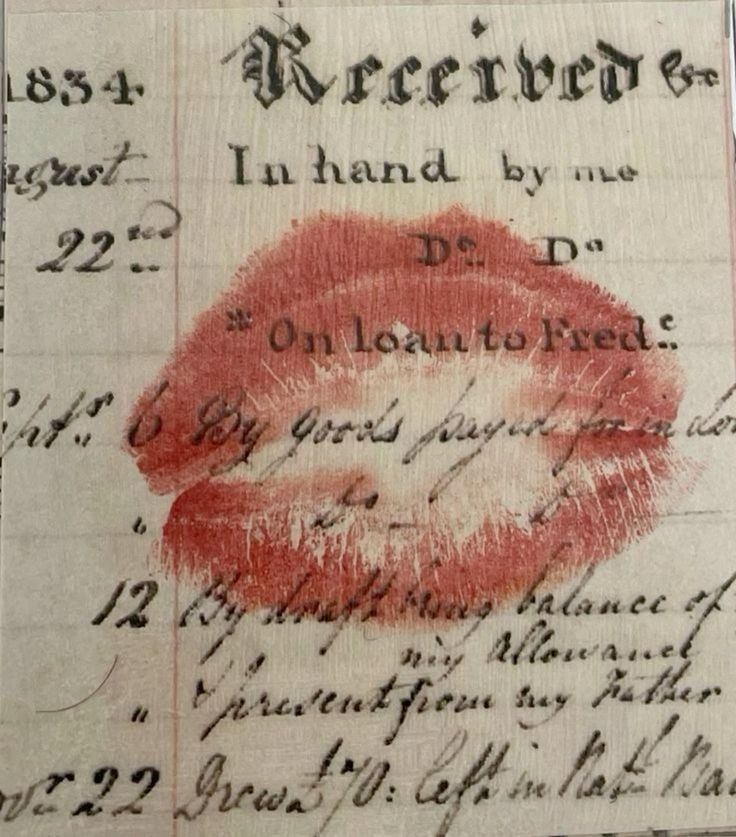 1834 Received &c
ugust In hand by me
22nd Do Do
"On loan to Fredc
eptr 6 By goods payed for in don
" Do Do
12 By draft being balance of
my allowance
" & present from my Father
ovr 22 Drew £70: left in Natl Ba